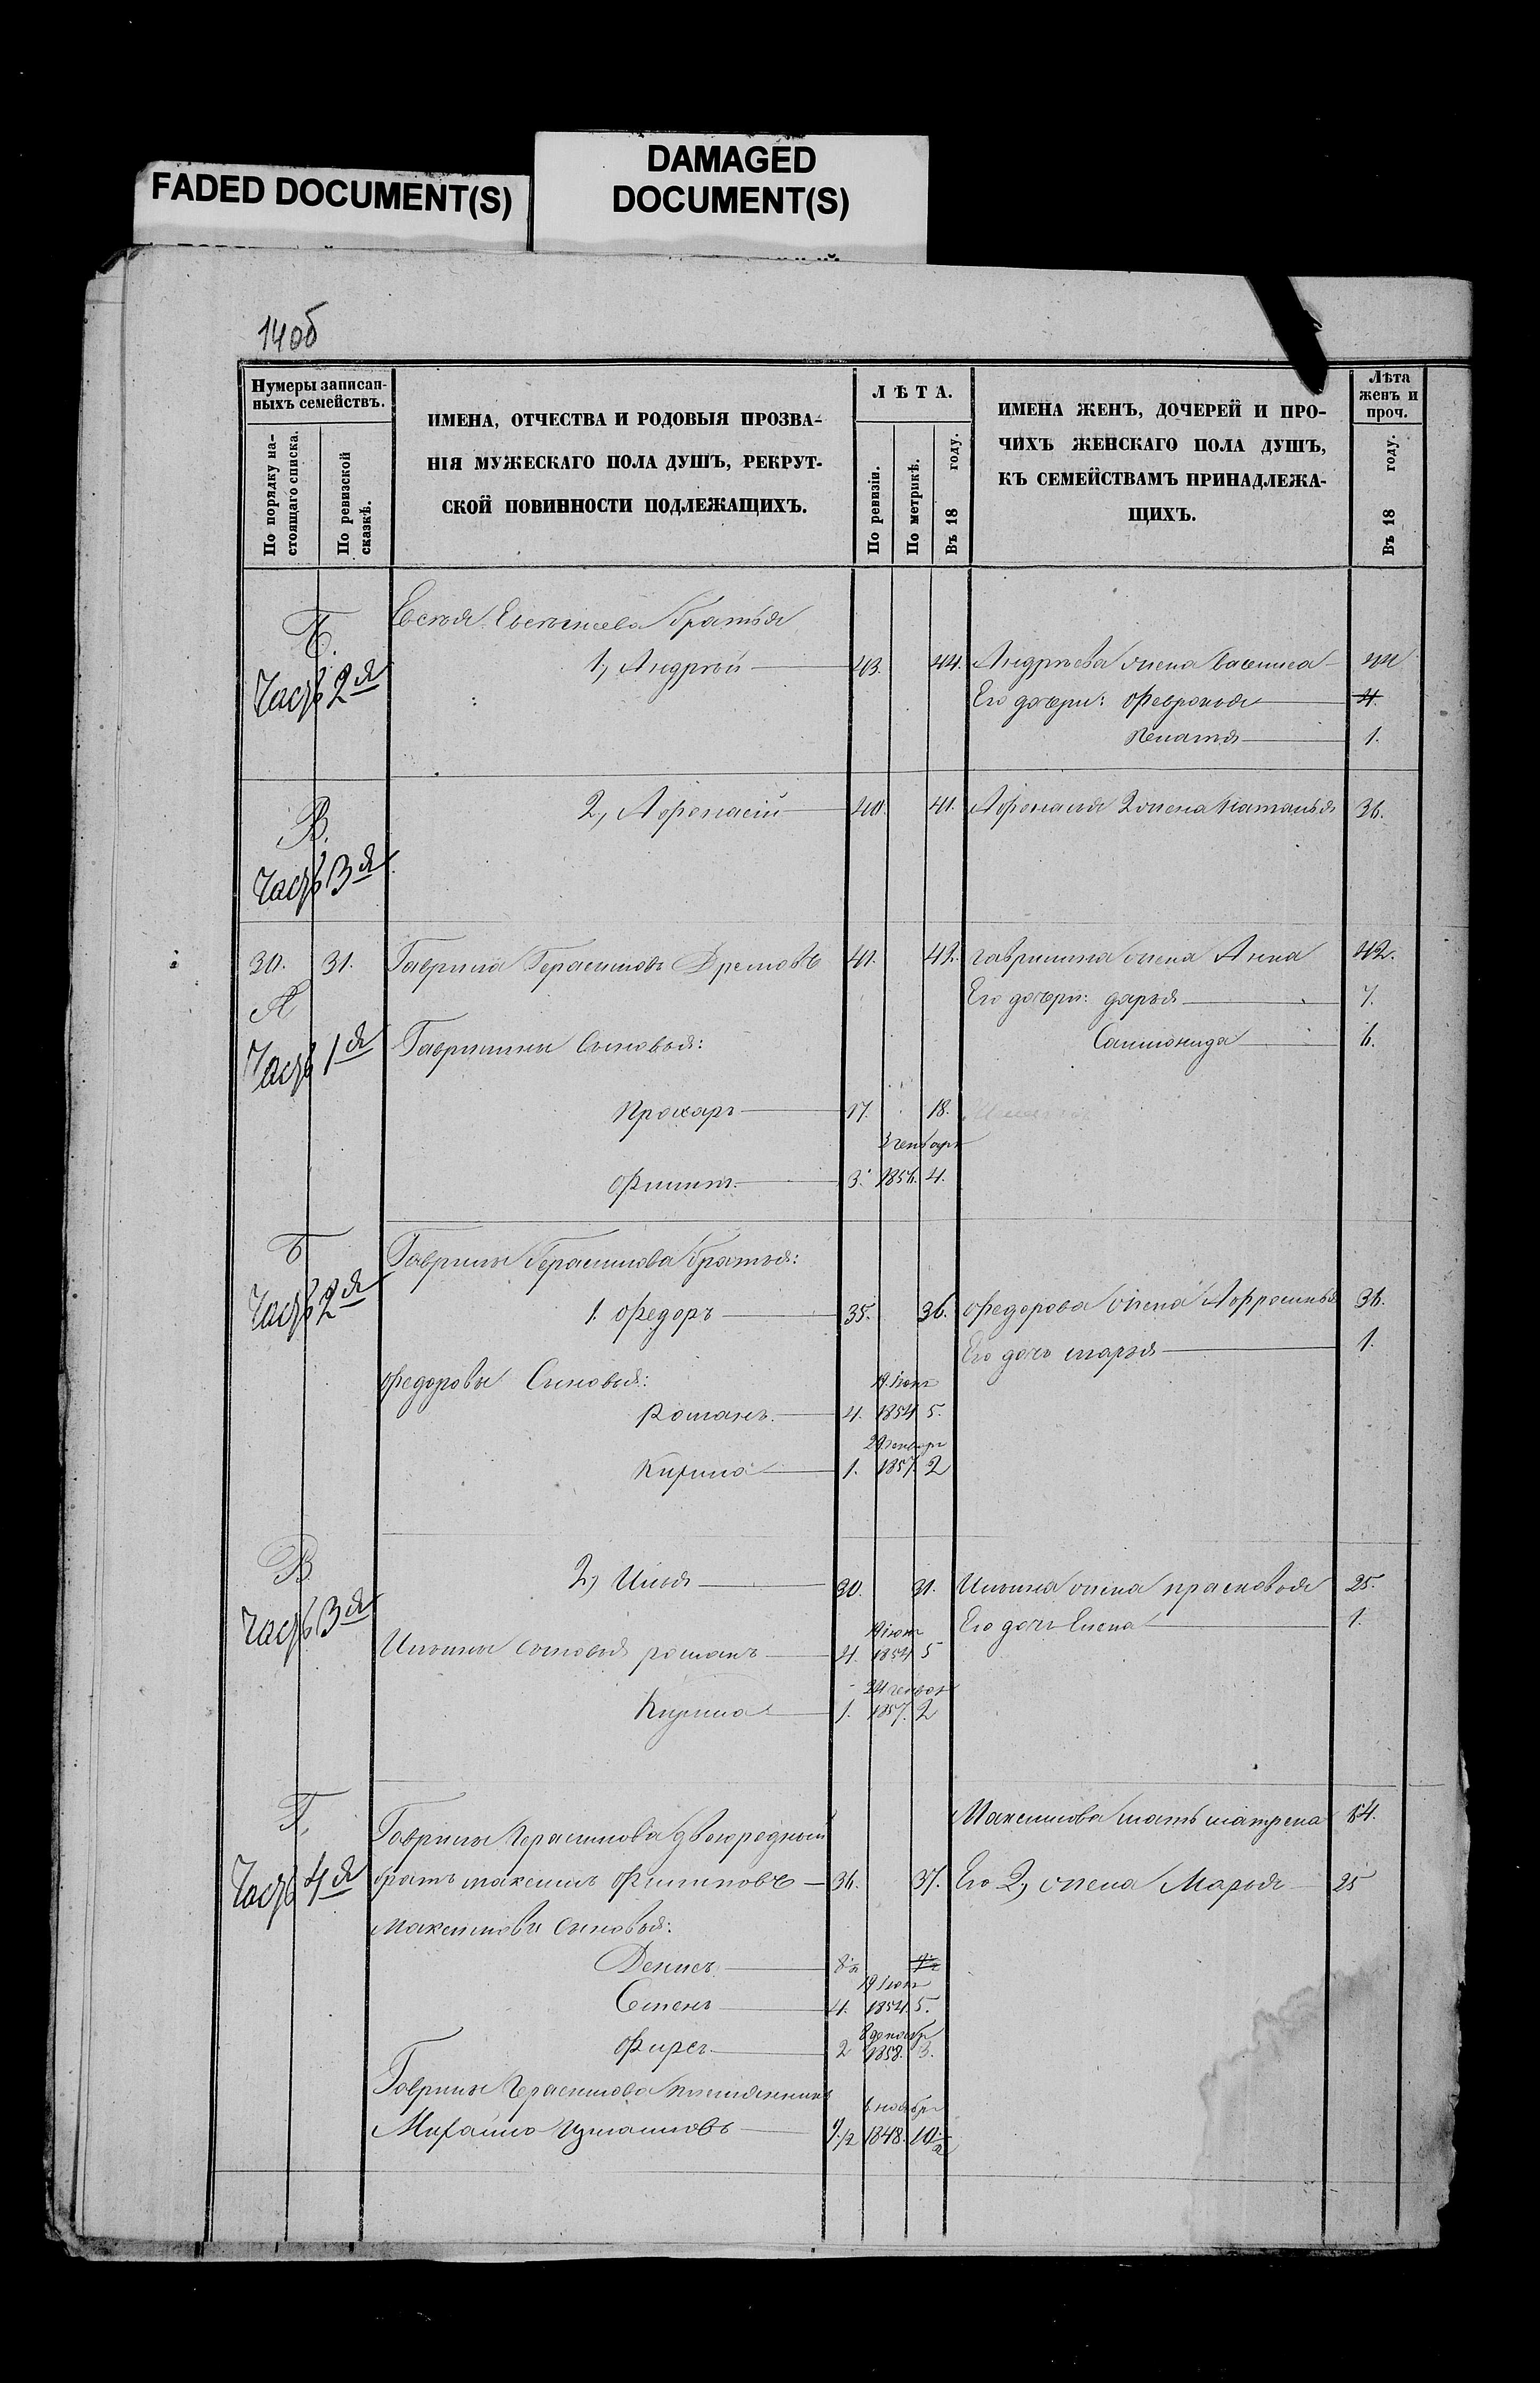 FADED DOCUMENT(S)
DAMAGED
DOCUMENT(S)
14об
Нумеры записан-
ныхъ семействъ.
По порядку на-
стоящаго списка.
По ревизской
сказкѣ.
ИМЕНА, ОТЧЕСТВА И РОДОВЫЯ ПРОЗВА-
НІЯ МУЖЕСКАГО ПОЛА ДУШЪ, РЕКРУТ-
СКОЙ ПОВИННОСТИ ПОДЛЕЖАЩИХЪ.
ЛѢТА.
По ревизіи.
По метрикѣ.
Въ 18 году.
ИМЕНА ЖЕНЪ, ДОЧЕРЕЙ И ПРО-
ЧИХЪ ЖЕНСКАГО ПОЛА ДУШЪ,
КЪ СЕМЕЙСТВАМЪ ПРИНАДЛЕЖА-
ЩИХЪ.
Лѣта
женъ и
проч.
Въ 18 году.
Б. братья
Часть 2я 1, Андрѣй 43. 44. Андрѣева жена Василиса 44
Его дочери: Февронья 4.
1.
В. 2, Афонасій 40. 41. Афонасья 2 жена Наталья 36.
Часть 3я
30. 31. Гаврила Герасимовъ Дремовъ 41. 42. Гаврилина жена Анна 42.
А Его дочери: дарья 7.
Часть 1я Гаврилины Сыновья: Соломонида 6.
Прохаръ 17. 18.
3 генваря
Филипъ 3. 1856. 4.
Б Гаврилы Герасимова братья:
Часть 2я 1. Федоръ 35. 36. Федорова жена Афросинья 36.
Его дочь марья 1.
Федоровы Сыновья: 19 Іюля
Романъ 4. 1854 5.
генваря
Кирила 1. 1857. 2
В 2, Илья 30. 31. Ильина жена прасковья 25.
Часть 3я Его дочь Елена 1.
19 іюля
Ильины сыновья романъ 4. 1854 5
24 генвар
Кирила 1. 1857. 2
Г. Максимова мать матрена 64.
Гаврилы Герасимова двоюродный
Часть 4я братъ максимъ Филиповъ 36. 37. Его 2, жена Марья 25
Максимовы сыновья:
Денисъ
19 Іюля
Семенъ 4. 1854. 5.
Фирсъ 2 1858. 3.
Гаврилы Герасимова племянникъ
6 ноября
Михайло 9 1/2 1848. 10 1/2